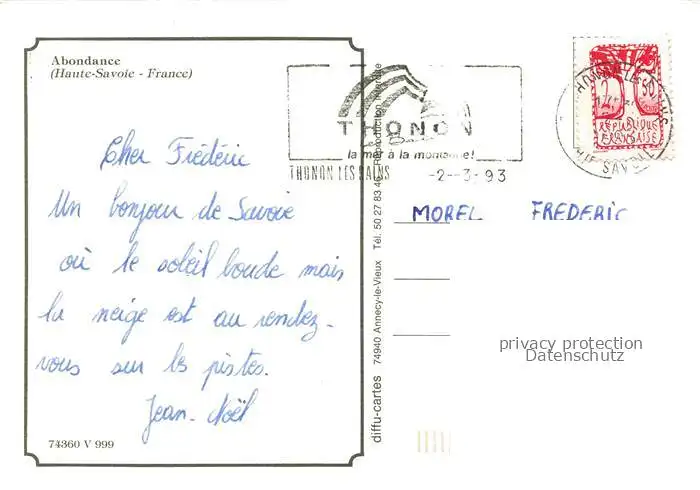 Abondance
(Haute-Savoie - France)
Cher Frédéric
Un bonjour de Savoie
où le soleil boude mais
la neige est au rendez-
vous sur les pistes.
Jean-Noël
74360 V 999
diffu-cartes 74940 Annecy-le-Vieux Tél. 50 27 83 Reproduction
THONON
la mer à la montagne!
THONON LES BAINS
-2--3-93
2
50
REPUBLIQUE
FRANÇAISE
HTE SAVOIE
MOREL FREDERIC
privacy protection
Datenschutz